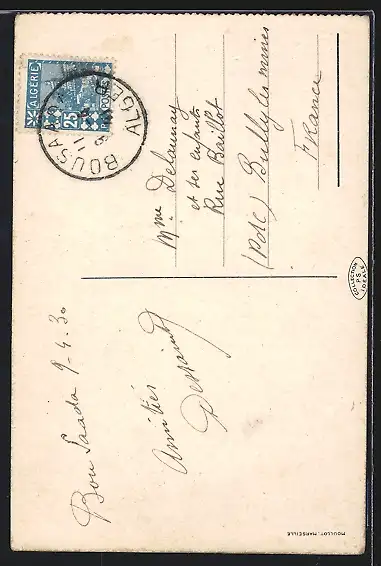 Bou Saada 9-4.30
Amitiés
Mme Delaunay
et ses enfants
Rue Baillot
(PdeC) Bully les mines
France
ALGÉRIE
25
POSTES
BOUSAADA
ALGER
COLLECTION
P.S.
IDEALE
MOULLOT. MARSEILLE